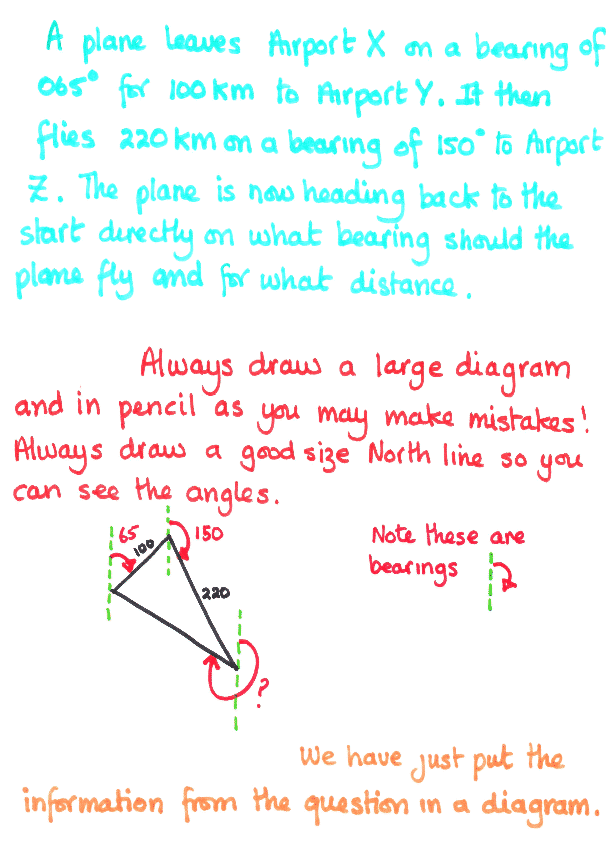 A plane leaves Airport X on a bearing of
065° for 100km to Airport Y. It then
flies 220km on a bearing of 150° to Airport
Z. The plane is now heading back to the
start directly on what bearing should the
plane fly and for what distance.
Always draw a large diagram
and in pencil as you may make mistakes!
Always draw a good size North line so you
can see the angles.
65
100
150
220
?
Note these are
bearings
We have just put the
information from the question in a diagram.